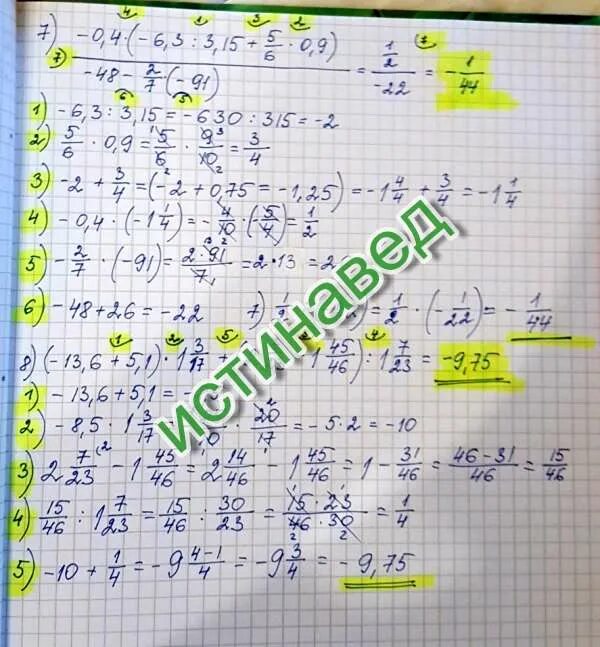 7) -0,4·(-6,3 : 3,15 + 5/6 · 0,9) / -48 - 2/7 (-91) = 1/2 / -22 = -1/44
1) -6,3 : 3,15 = -630 : 315 = -2
2) 5/6 · 0,9 = 5/6 · 9/10 = 3/4
3) -2 + 3/4 = (-2 + 0,75 = -1,25) = -1 4/4 + 3/4 = -1 1/4
4) -0,4 · (-1 1/4) = -4/10 · (-5/4) = 1/2
5) -2/7 · (-91) = 2·91/7 = 2·13 = 2
6) -48 + 26 = -22 7) 1/2 ) = 1/2 · (-1/22) = -1/44
8) (-13,6 + 5,1) · 1 3/17 + 1 45/46) : 1 7/23 = -9,75
1) -13,6 + 5,1 =
2) -8,5 · 1 3/17 10 · 20/17 = -5·2 = -10
3) 2 7/23 - 1 45/46 = 2 14/46 - 1 45/46 = 1 - 31/46 = 46-31/46 = 15/46
4) 15/46 : 1 7/23 = 15/46 : 30/23 = 15·23/46·30 = 1/4
5) -10 + 1/4 = -9 4-1/4 = -9 3/4 = -9,75
ИСТИНАВЕД